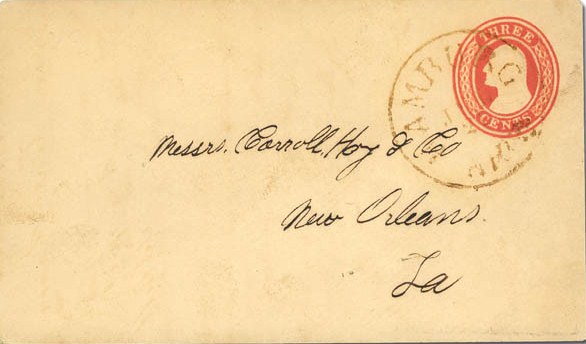 THREE
CENTS
Messrs. Carroll, Hoy & Co
New Orleans.
La